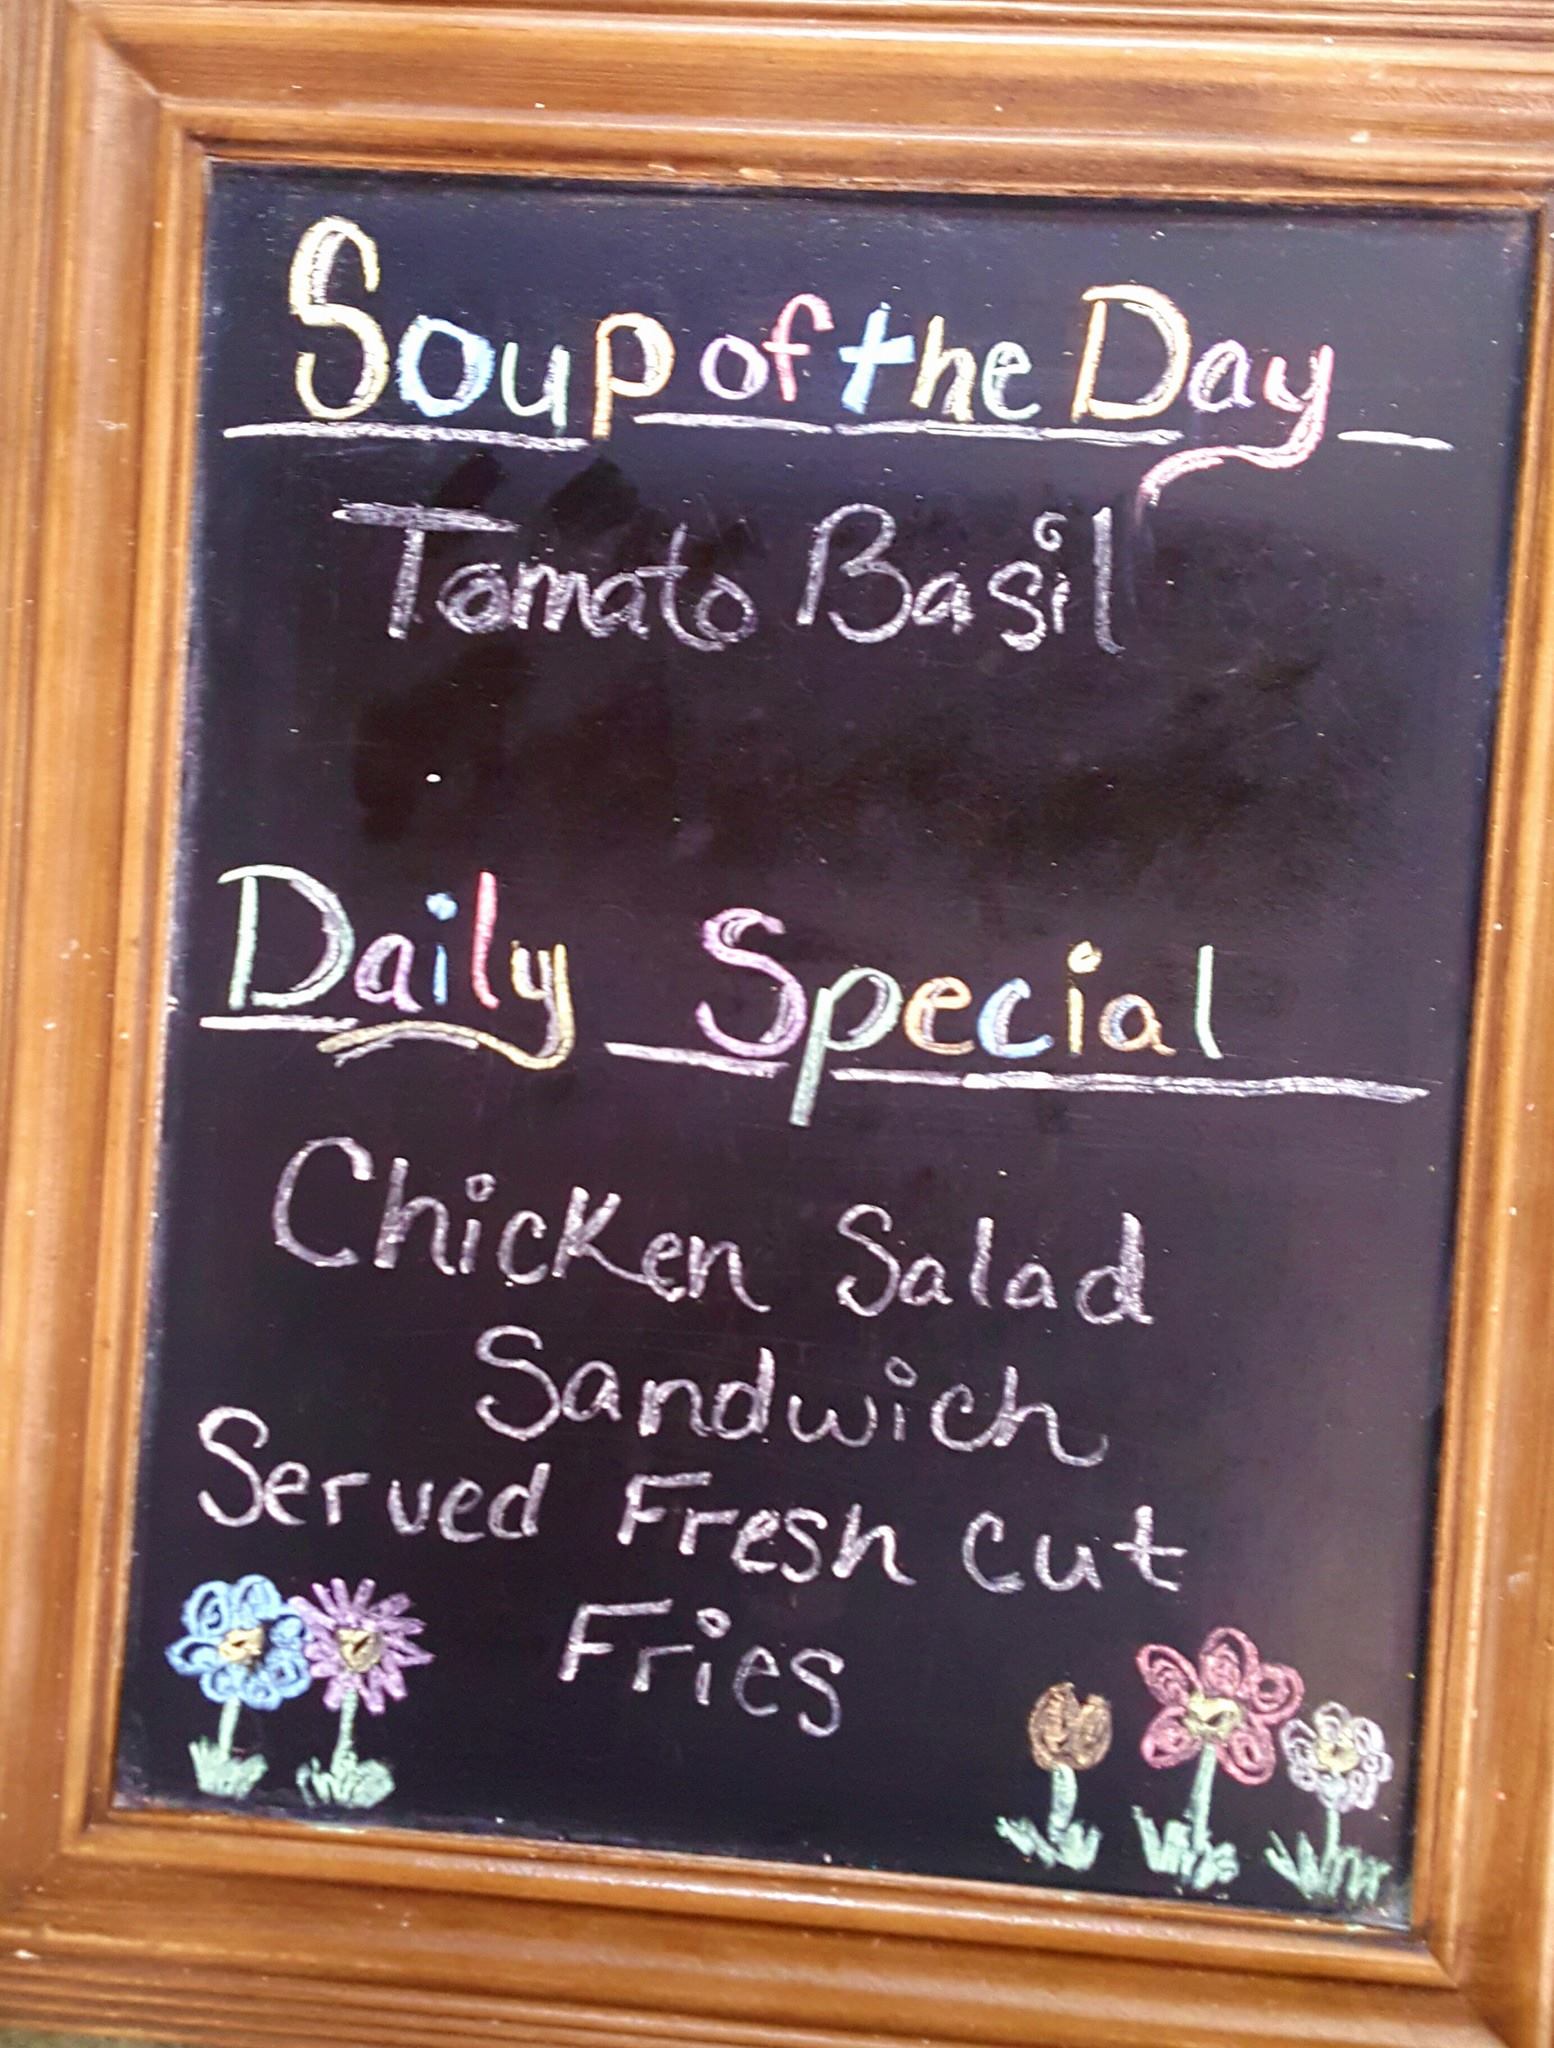 Soup of the Day
Tomato Basil
Daily Special
Chicken Salad
Sandwich
Served Fresh cut
Fries